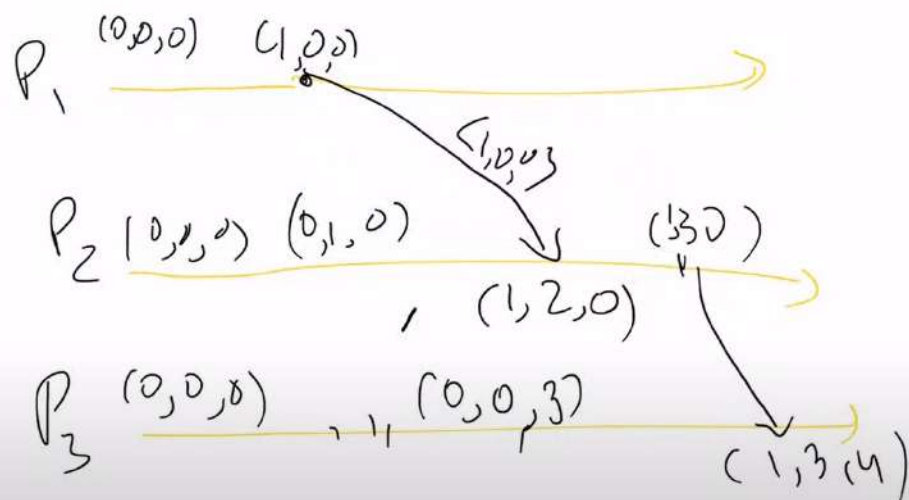 (0,0,0) (1,0,0)
P1
{1,0,0}
P2 (0,0,0) (0,1,0) (1,3,0)
(1,2,0)
P3 (0,0,0) (0,0,3)
(1,3,4)